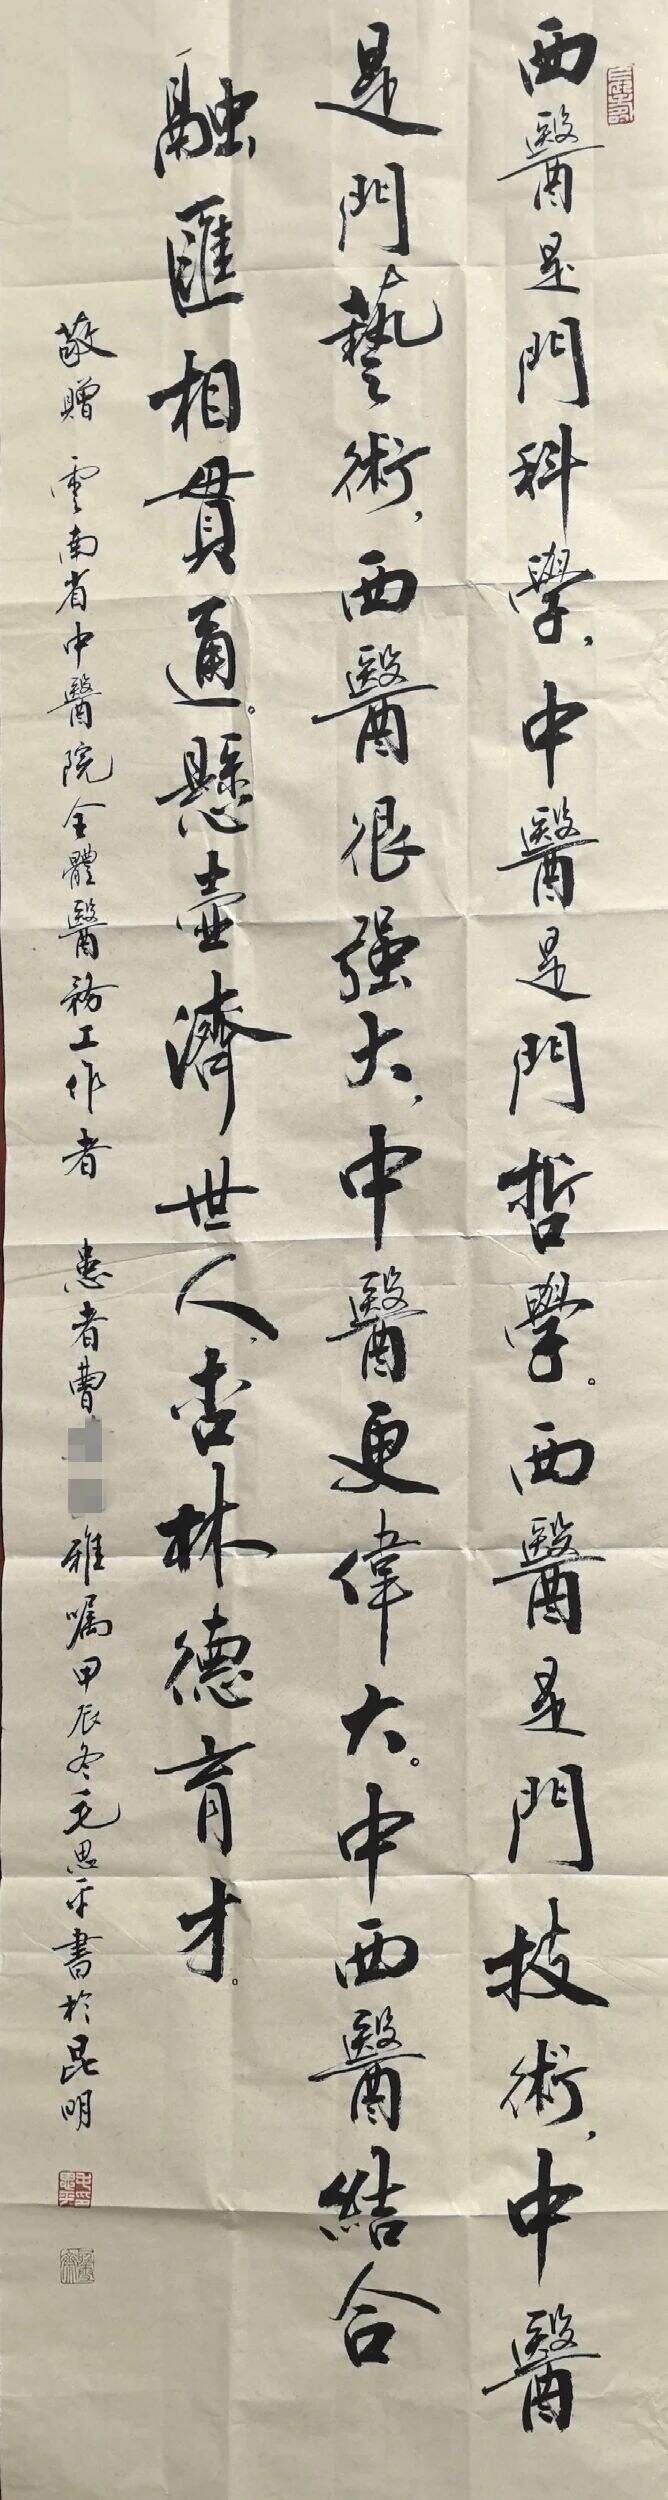 西醫是門科學，中醫是門哲學。西醫是門技術，中醫
是門藝術，西醫很强大，中醫更偉大。中西醫結合
融匯相貫通。懸壺濟世人，杏林德育才。
敬贈 雲南省中醫院全體醫務工作者 患者曹 雅嘱甲辰冬毛思平書於昆明